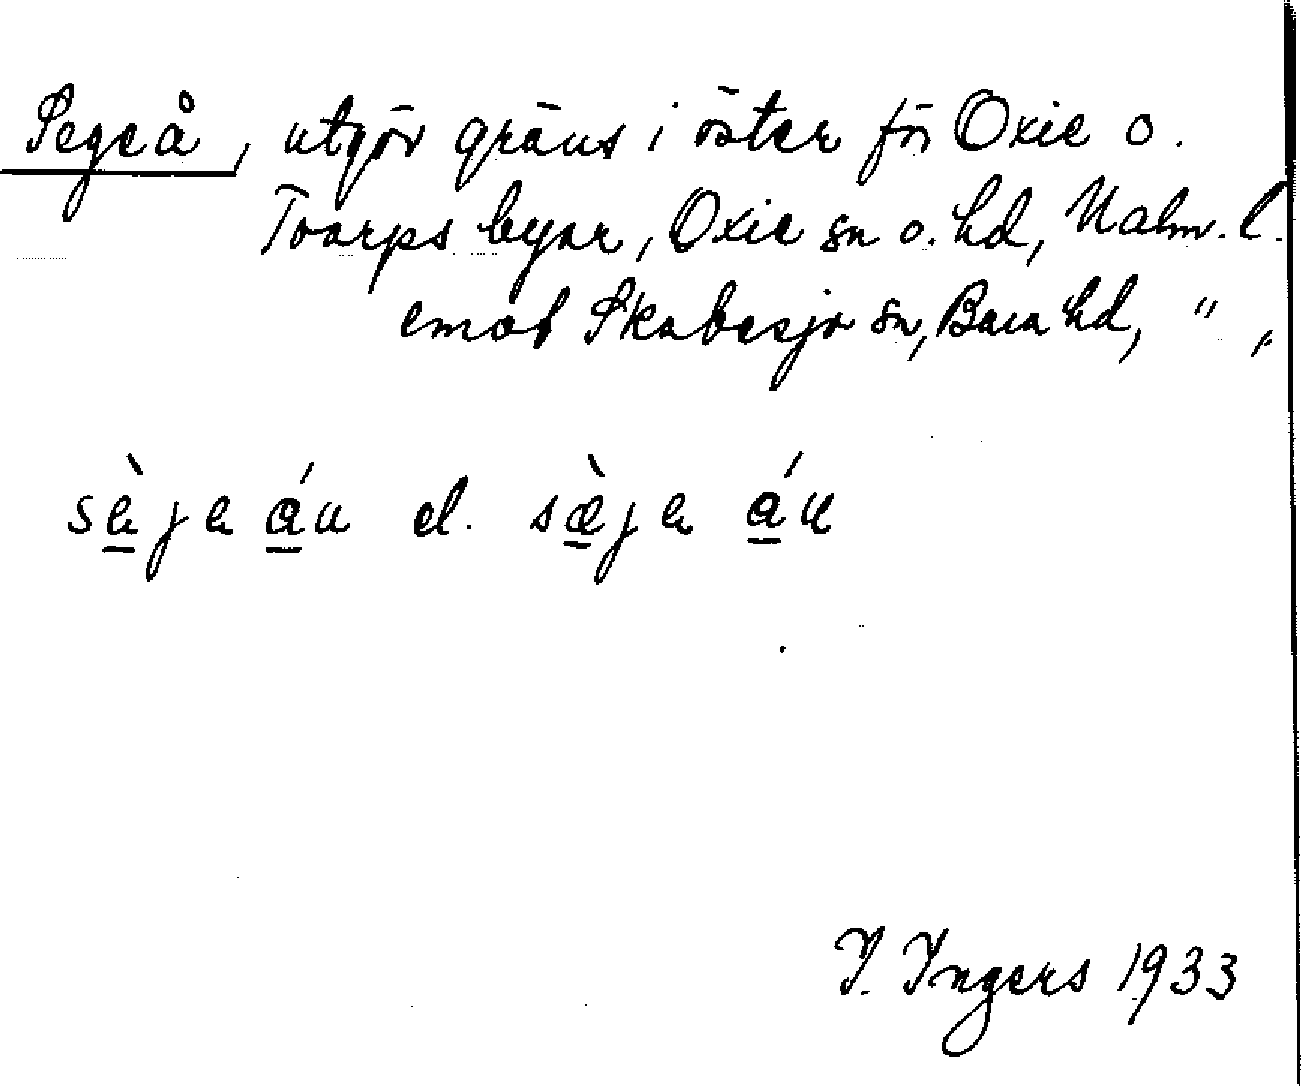 Segeå, utgör gräns i öster för Oxie o.
Toarps byar, Oxie sn o. hd, Malm. l.
emot Skabesjö sn, Bara hd, " ,
sèje áu el. sæ̀je áu
I. Ingers 1933